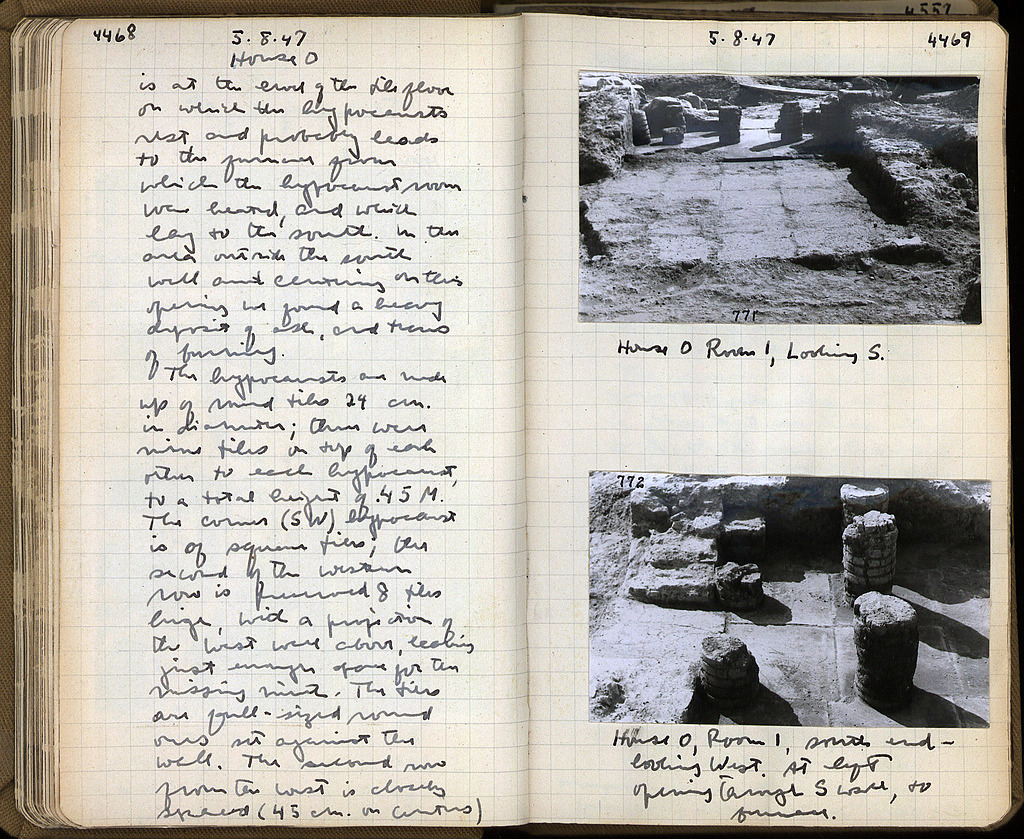 4468
5.8.47
House O
is at the end of the tile floor
on which the hypocausts
rest, and probably leads
to the furnace from
which the hypocaust room
was heated, and which
lay to the south. In the
area outside the south
wall and centering on this
opening we found a heavy
deposit of ash, and traces
of burning.
The hypocausts are made
up of round tiles 24 cm.
in diameter; there were
nine tiles on top of each
other to each hypocaust,
to a total height of .45 M.
The corner (SW) hypocaust
is of square tiles; the
second of the western
row is preserved 8 tiles
high, with a projection of
the West wall above, leaving
just enough space for the
missing ninth. The tiles
are full-sized round
ones set against the
wall. The second row
from the west is closely
spaced (45 cm. on centers)
4557
5.8.47
4469
771
House O Room 1, Looking S.
772
House O, Room 1, south end -
looking West. At left
opening through S wall, to
furnace.